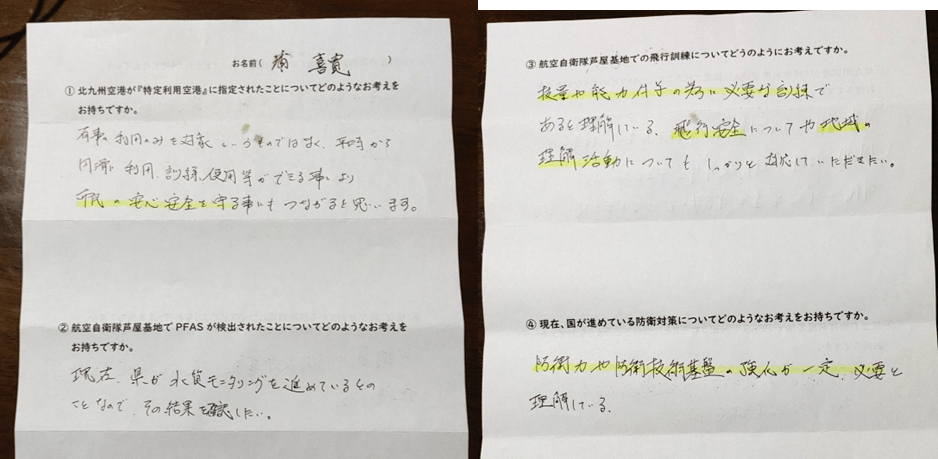 お名前( 南 喜寛 )
① 北九州空港が『特定利用空港』に指定されたことについてどのようなお考えを
お持ちですか。
有事の利用のみを対象というものではなく、平時から
円滑に利用、訓練、使用等ができる事により
市民の安心安全を守る事にもつながると思います。
② 航空自衛隊芦屋基地で PFAS が検出されたことについてどのようなお考えを
お持ちですか。
現在、県が水質モニタリングを進めているとの
ことなので、その結果を確認したい。
③ 航空自衛隊芦屋基地での飛行訓練についてどのようにお考えですか。
技量や能力付与の為に必要な訓練で
あると理解している。飛行安全についてや地域の
理解活動についてもしっかりと対応していただきたい。
④ 現在、国が進めている防衛対策についてどのようなお考えをお持ちですか。
防衛力や防衛技術基盤の強化が一定、必要と
理解している。